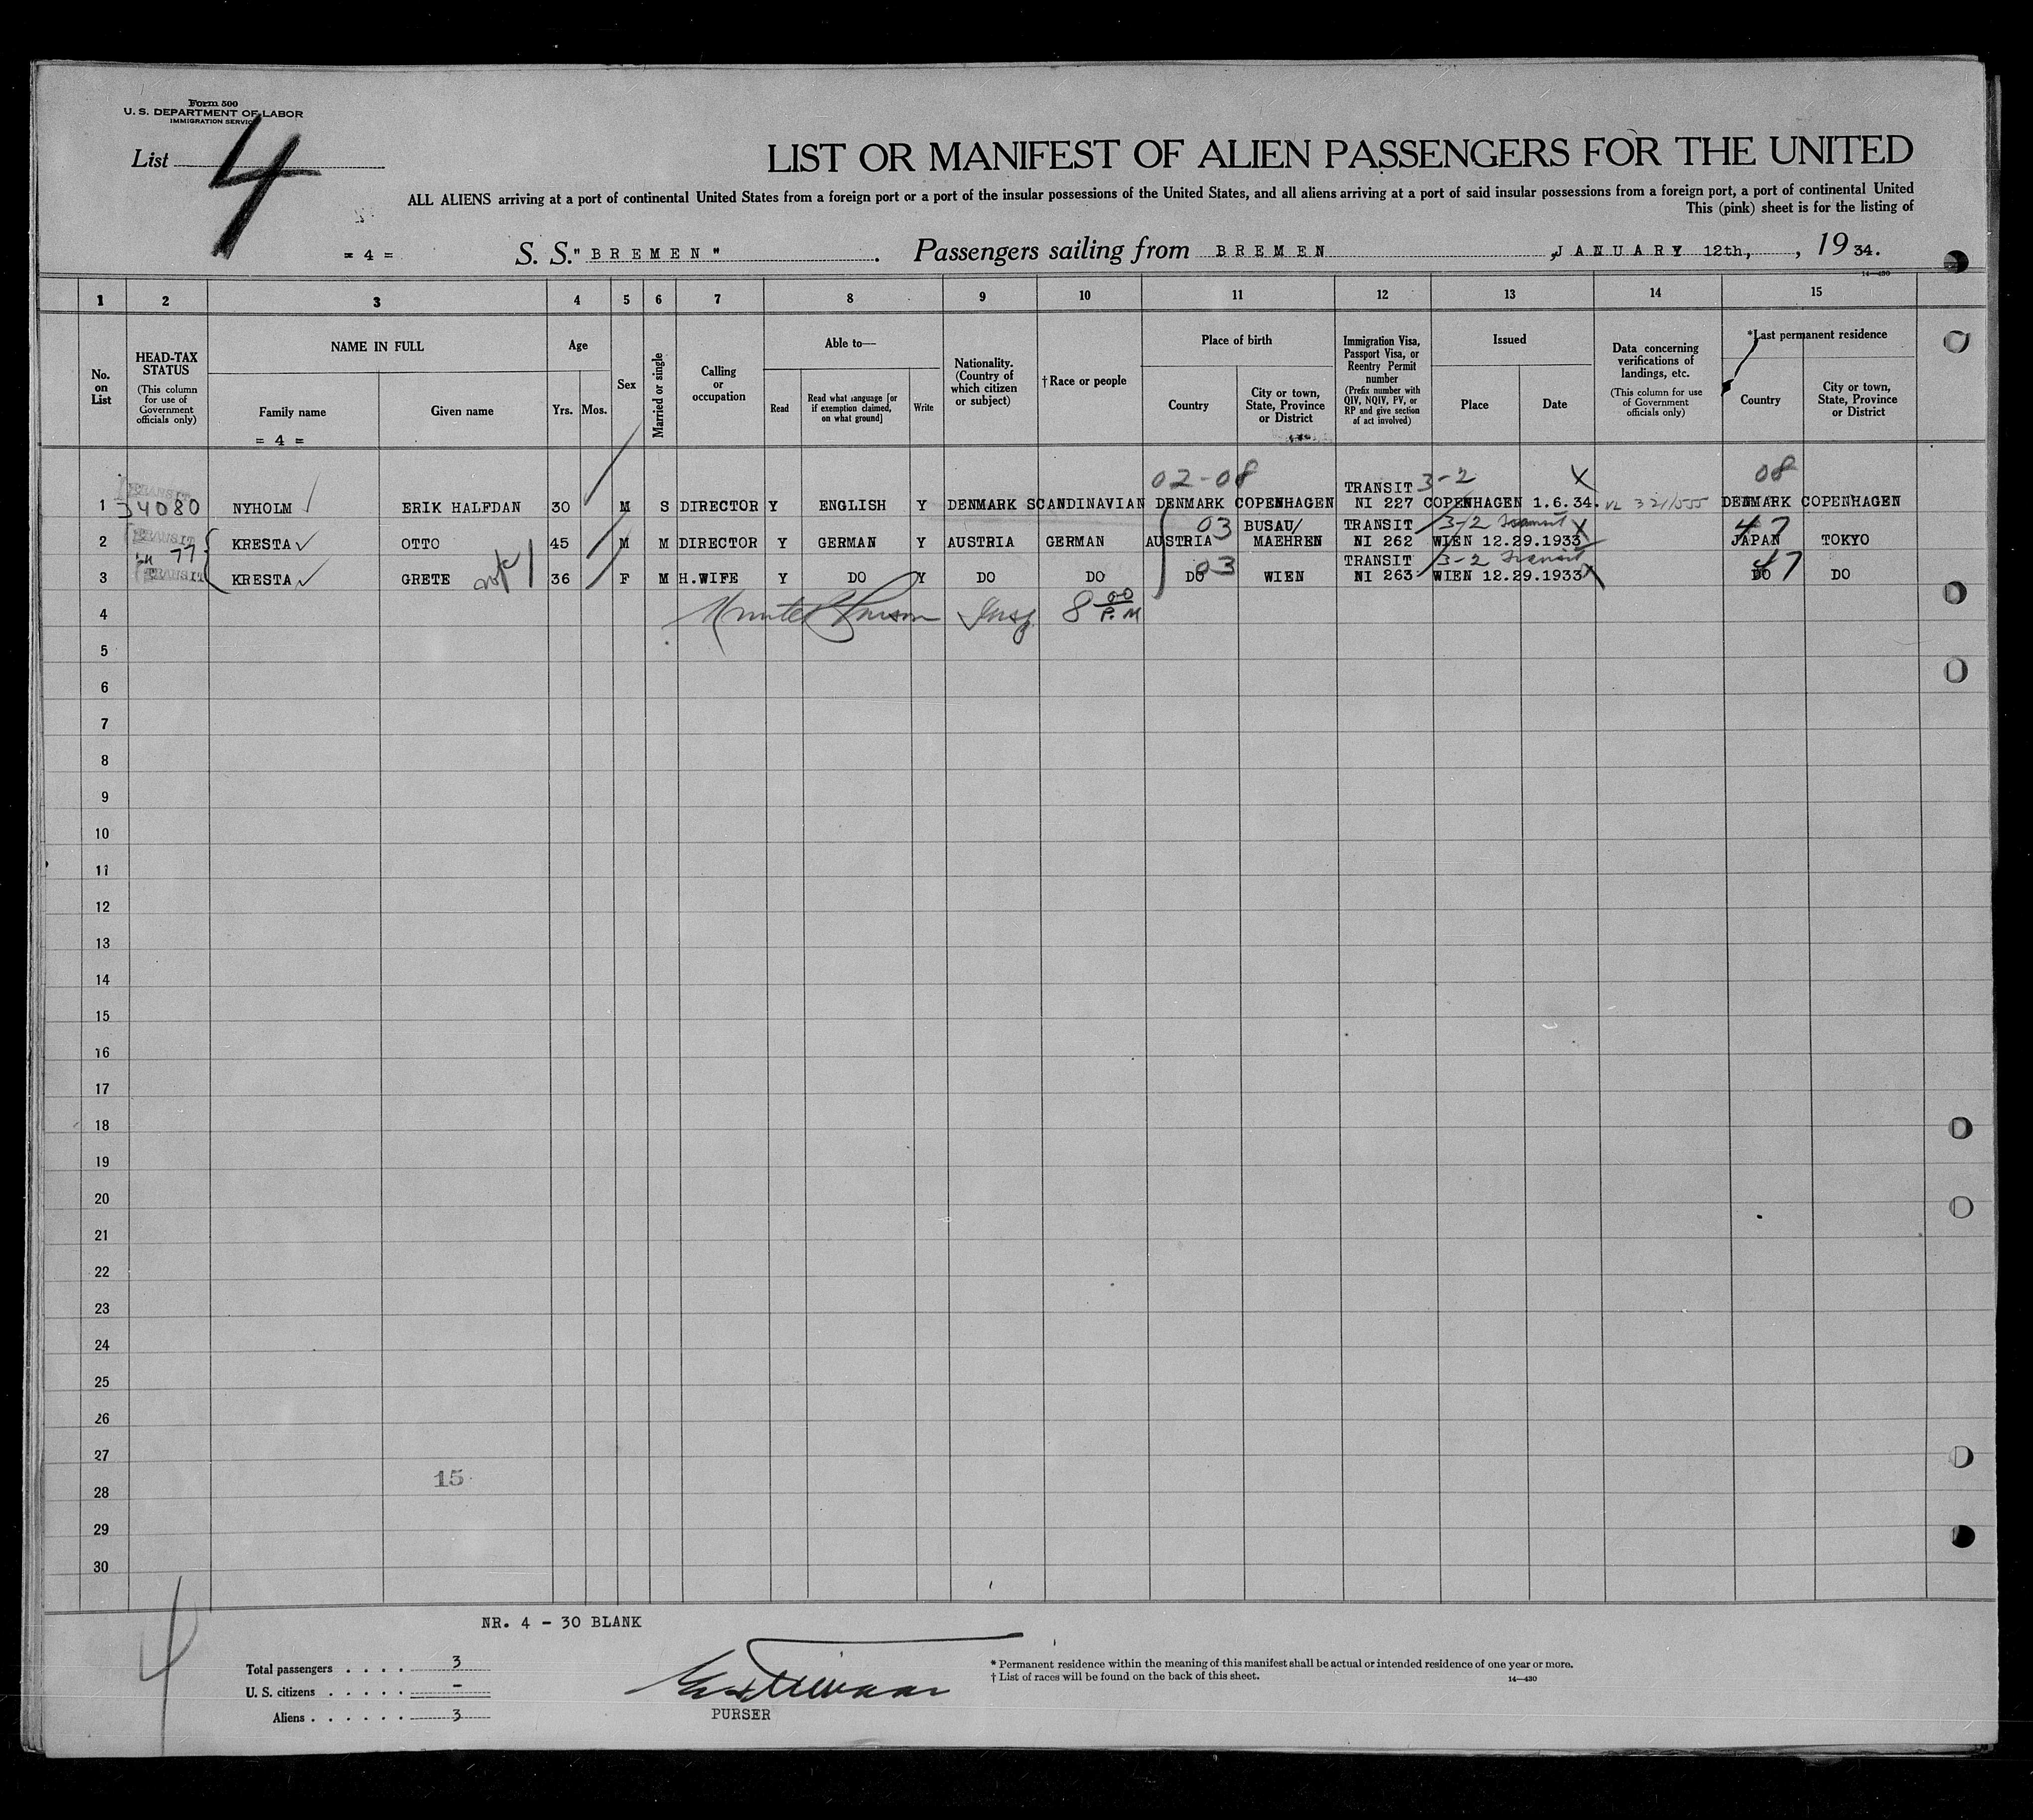 Form 500
U. S. DEPARTMENT OF LABOR
IMMIGRATION SERVICE
List 4
LIST OR MANIFEST OF ALIEN PASSENGERS FOR THE UNITED
ALL ALIENS arriving at a port of continental United States from a foreign port or a port of the insular possessions of the United States, and all aliens arriving at a port of said insular possessions from a foreign port, a port of continental United
This (pink) sheet is for the listing of
= 4 = S. S. "BREMEN". Passengers sailing from BREMEN, JANUARY 12th, , 19 34.
14—430
1 2 3 4 5 6 7 8 9 10 11 12 13 14 15
No. on List
HEAD-TAX STATUS
(This column for use of Government officials only)
NAME IN FULL
Family name
Given name
= 4 =
Age
Yrs. Mos.
Sex
Married or single
Calling or occupation
Able to—
Read
Read what language [or if exemption claimed, on what ground]
Write
Nationality. (Country of which citizen or subject)
† Race or people
Place of birth
Country
City or town, State, Province or District
Immigration Visa, Passport Visa, or Reentry Permit number
(Prefix number with QIV, NQIV, PV, or RP and give section of act involved)
Issued
Place
Date
Data concerning verifications of landings, etc.
(This column for use of Government officials only)
*Last permanent residence
Country
City or town, State, Province or District
TRANSIT 02-08 TRANSIT 3-2 X 08
1 34080 NYHOLM ERIK HALFDAN 30 M S DIRECTOR Y ENGLISH Y DENMARK SCANDINAVIAN DENMARK COPENHAGEN NI 227 COPENHAGEN 1.6.34. DENMARK COPENHAGEN
TRANSIT 03 BUSAU/ TRANSIT 3-2 Transit X 47
2 77 KRESTA OTTO 45 M M DIRECTOR Y GERMAN Y AUSTRIA GERMAN AUSTRIA MAEHREN NI 262 WIEN 12.29.1933 JAPAN TOKYO
TRANSIT 03 TRANSIT 3-2 Transit X 47
3 KRESTA GRETE 36 F M H.WIFE Y DO Y DO DO DO WIEN NI 263 WIEN 12.29.1933 DO DO
4 Insp. 8 00 P.M
5
6
7
8
9
10
11
12
13
14
15
16
17
18
19
20
21
22
23
24
25
26
27
15
28
29
30
NR. 4 - 30 BLANK
4
Total passengers . . . . 3
U. S. citizens . . . . . -
Aliens . . . . . . 3
PURSER
* Permanent residence within the meaning of this manifest shall be actual or intended residence of one year or more.
† List of races will be found on the back of this sheet.
14—430